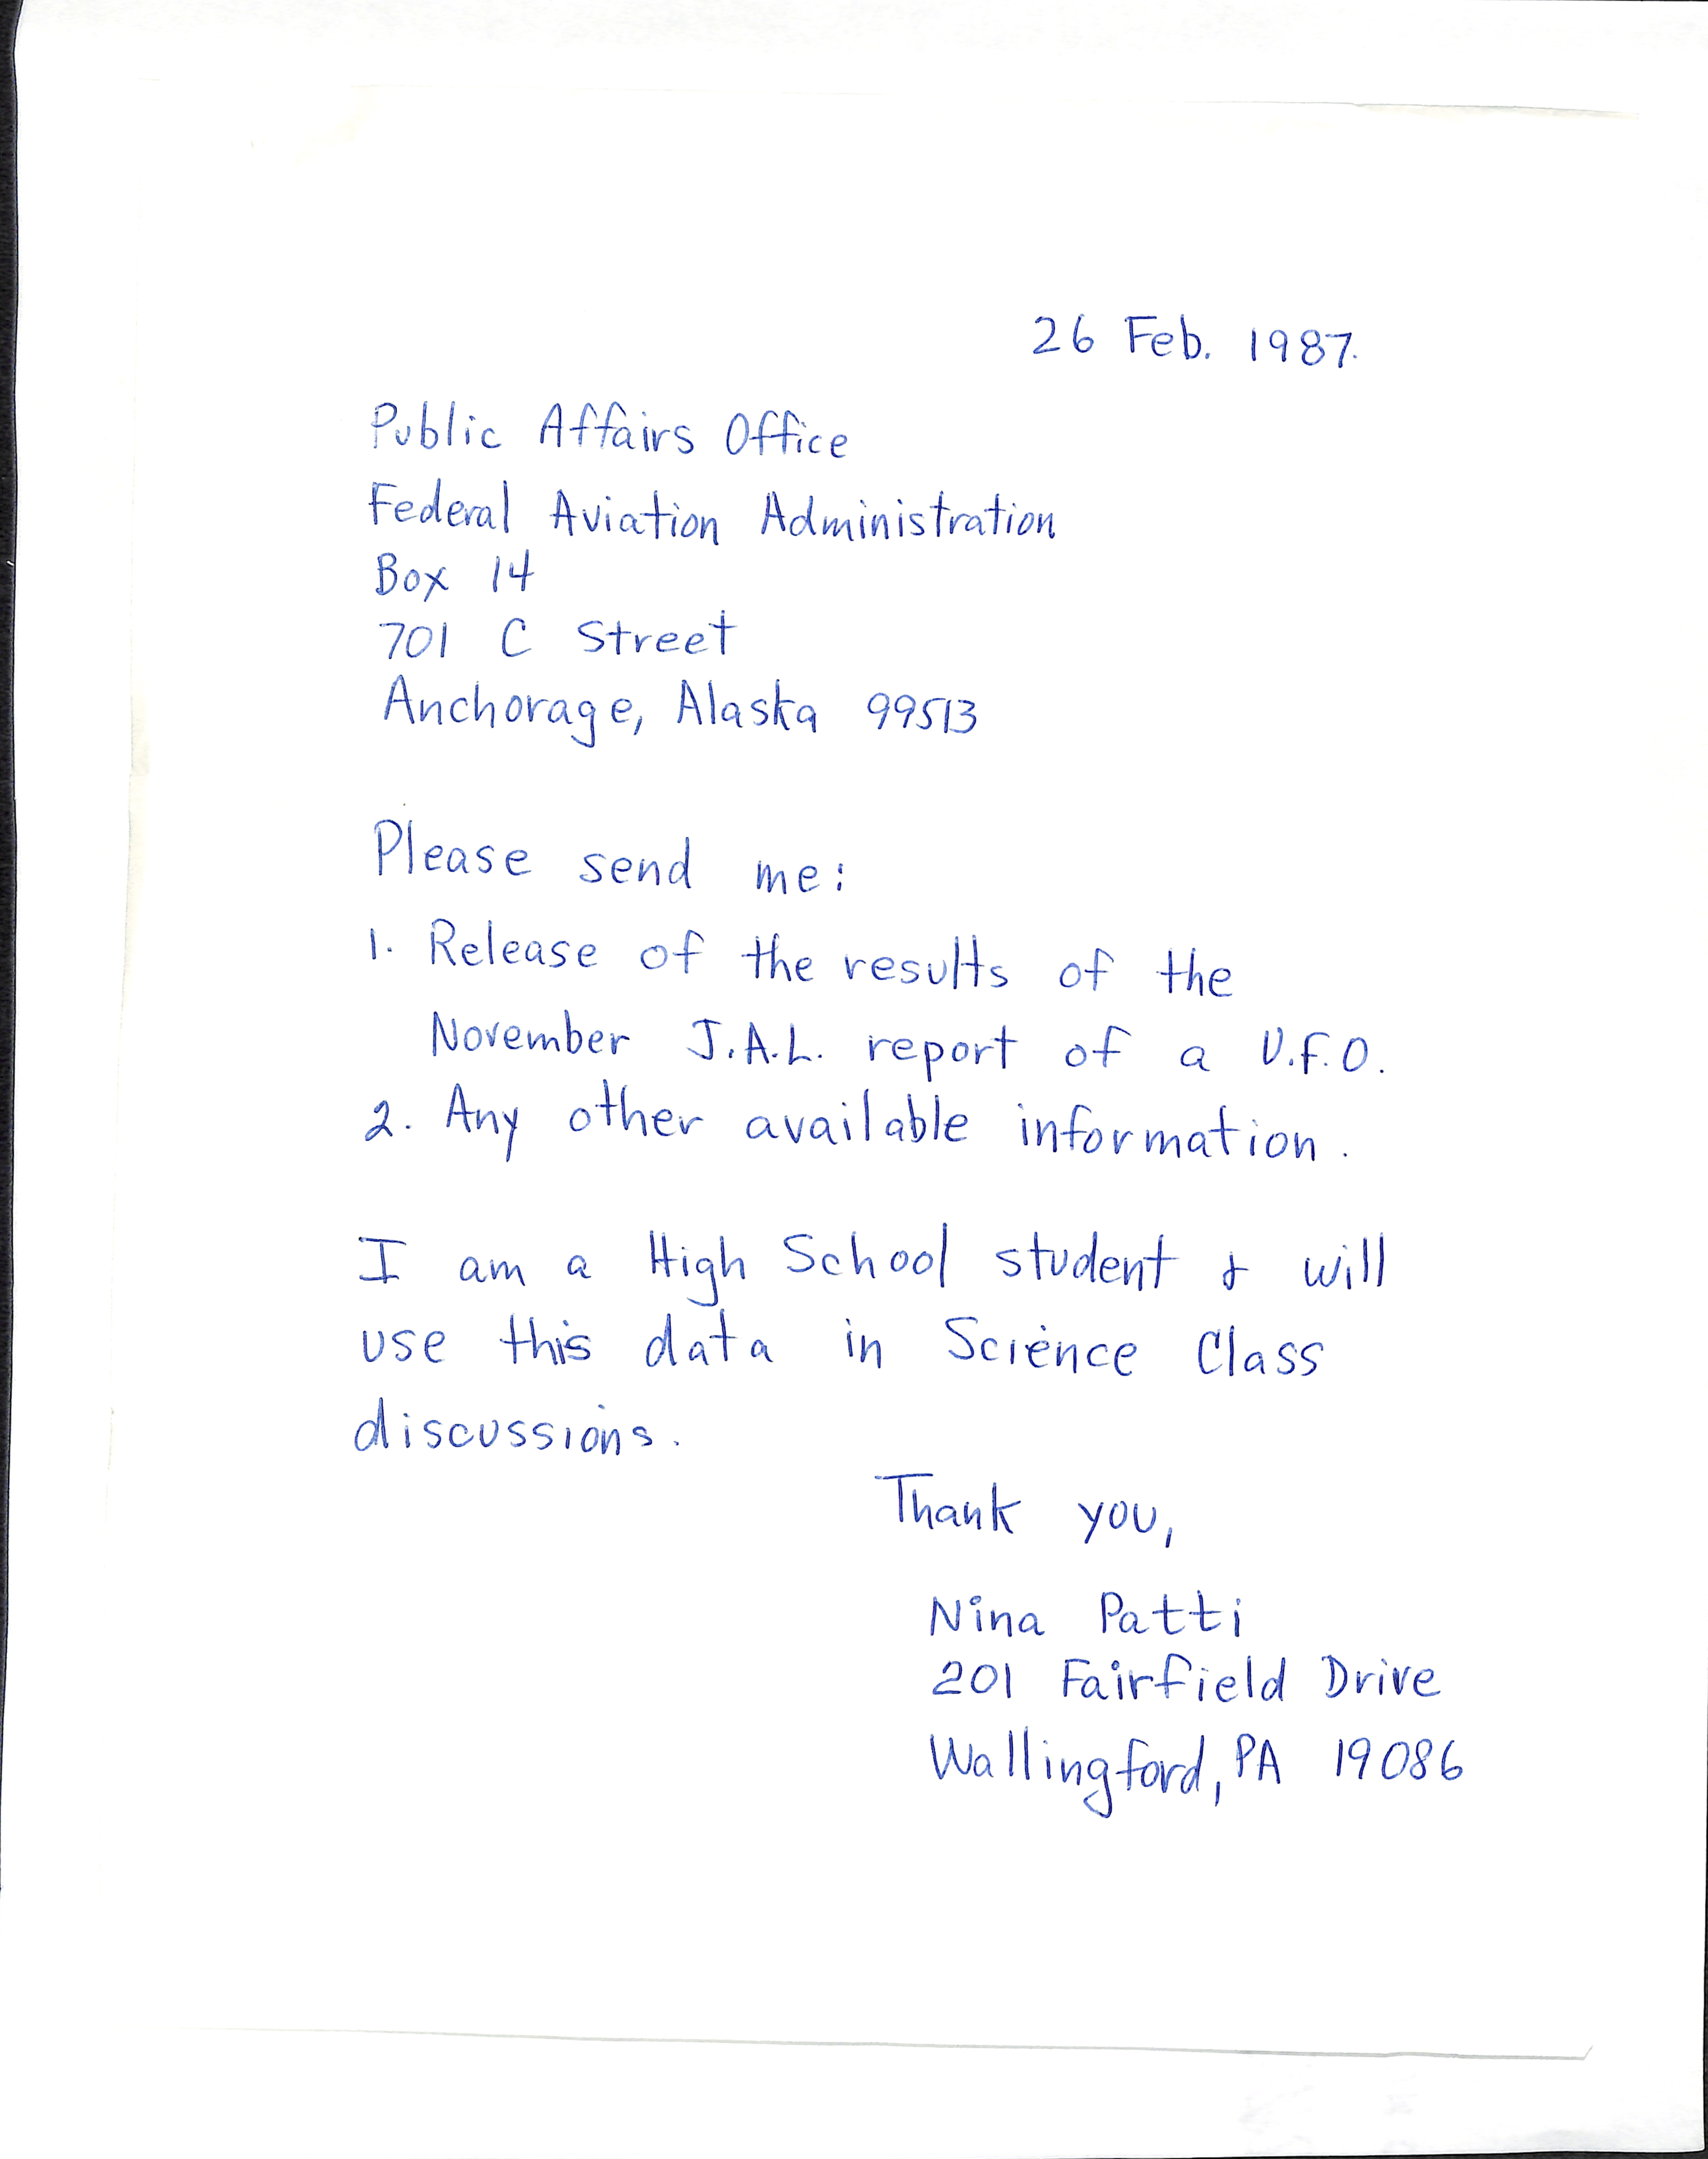 26 Feb. 1987.
Public Affairs Office
Federal Aviation Administration
Box 14
701 C Street
Anchorage, Alaska 99513
Please send me:
1. Release of the results of the
November J.A.L. report of a U.F.O.
2. Any other available information.
I am a High School student & will
use this data in Science Class
discussions.
Thank you,
Nina Patti
201 Fairfield Drive
Wallingford, PA 19086